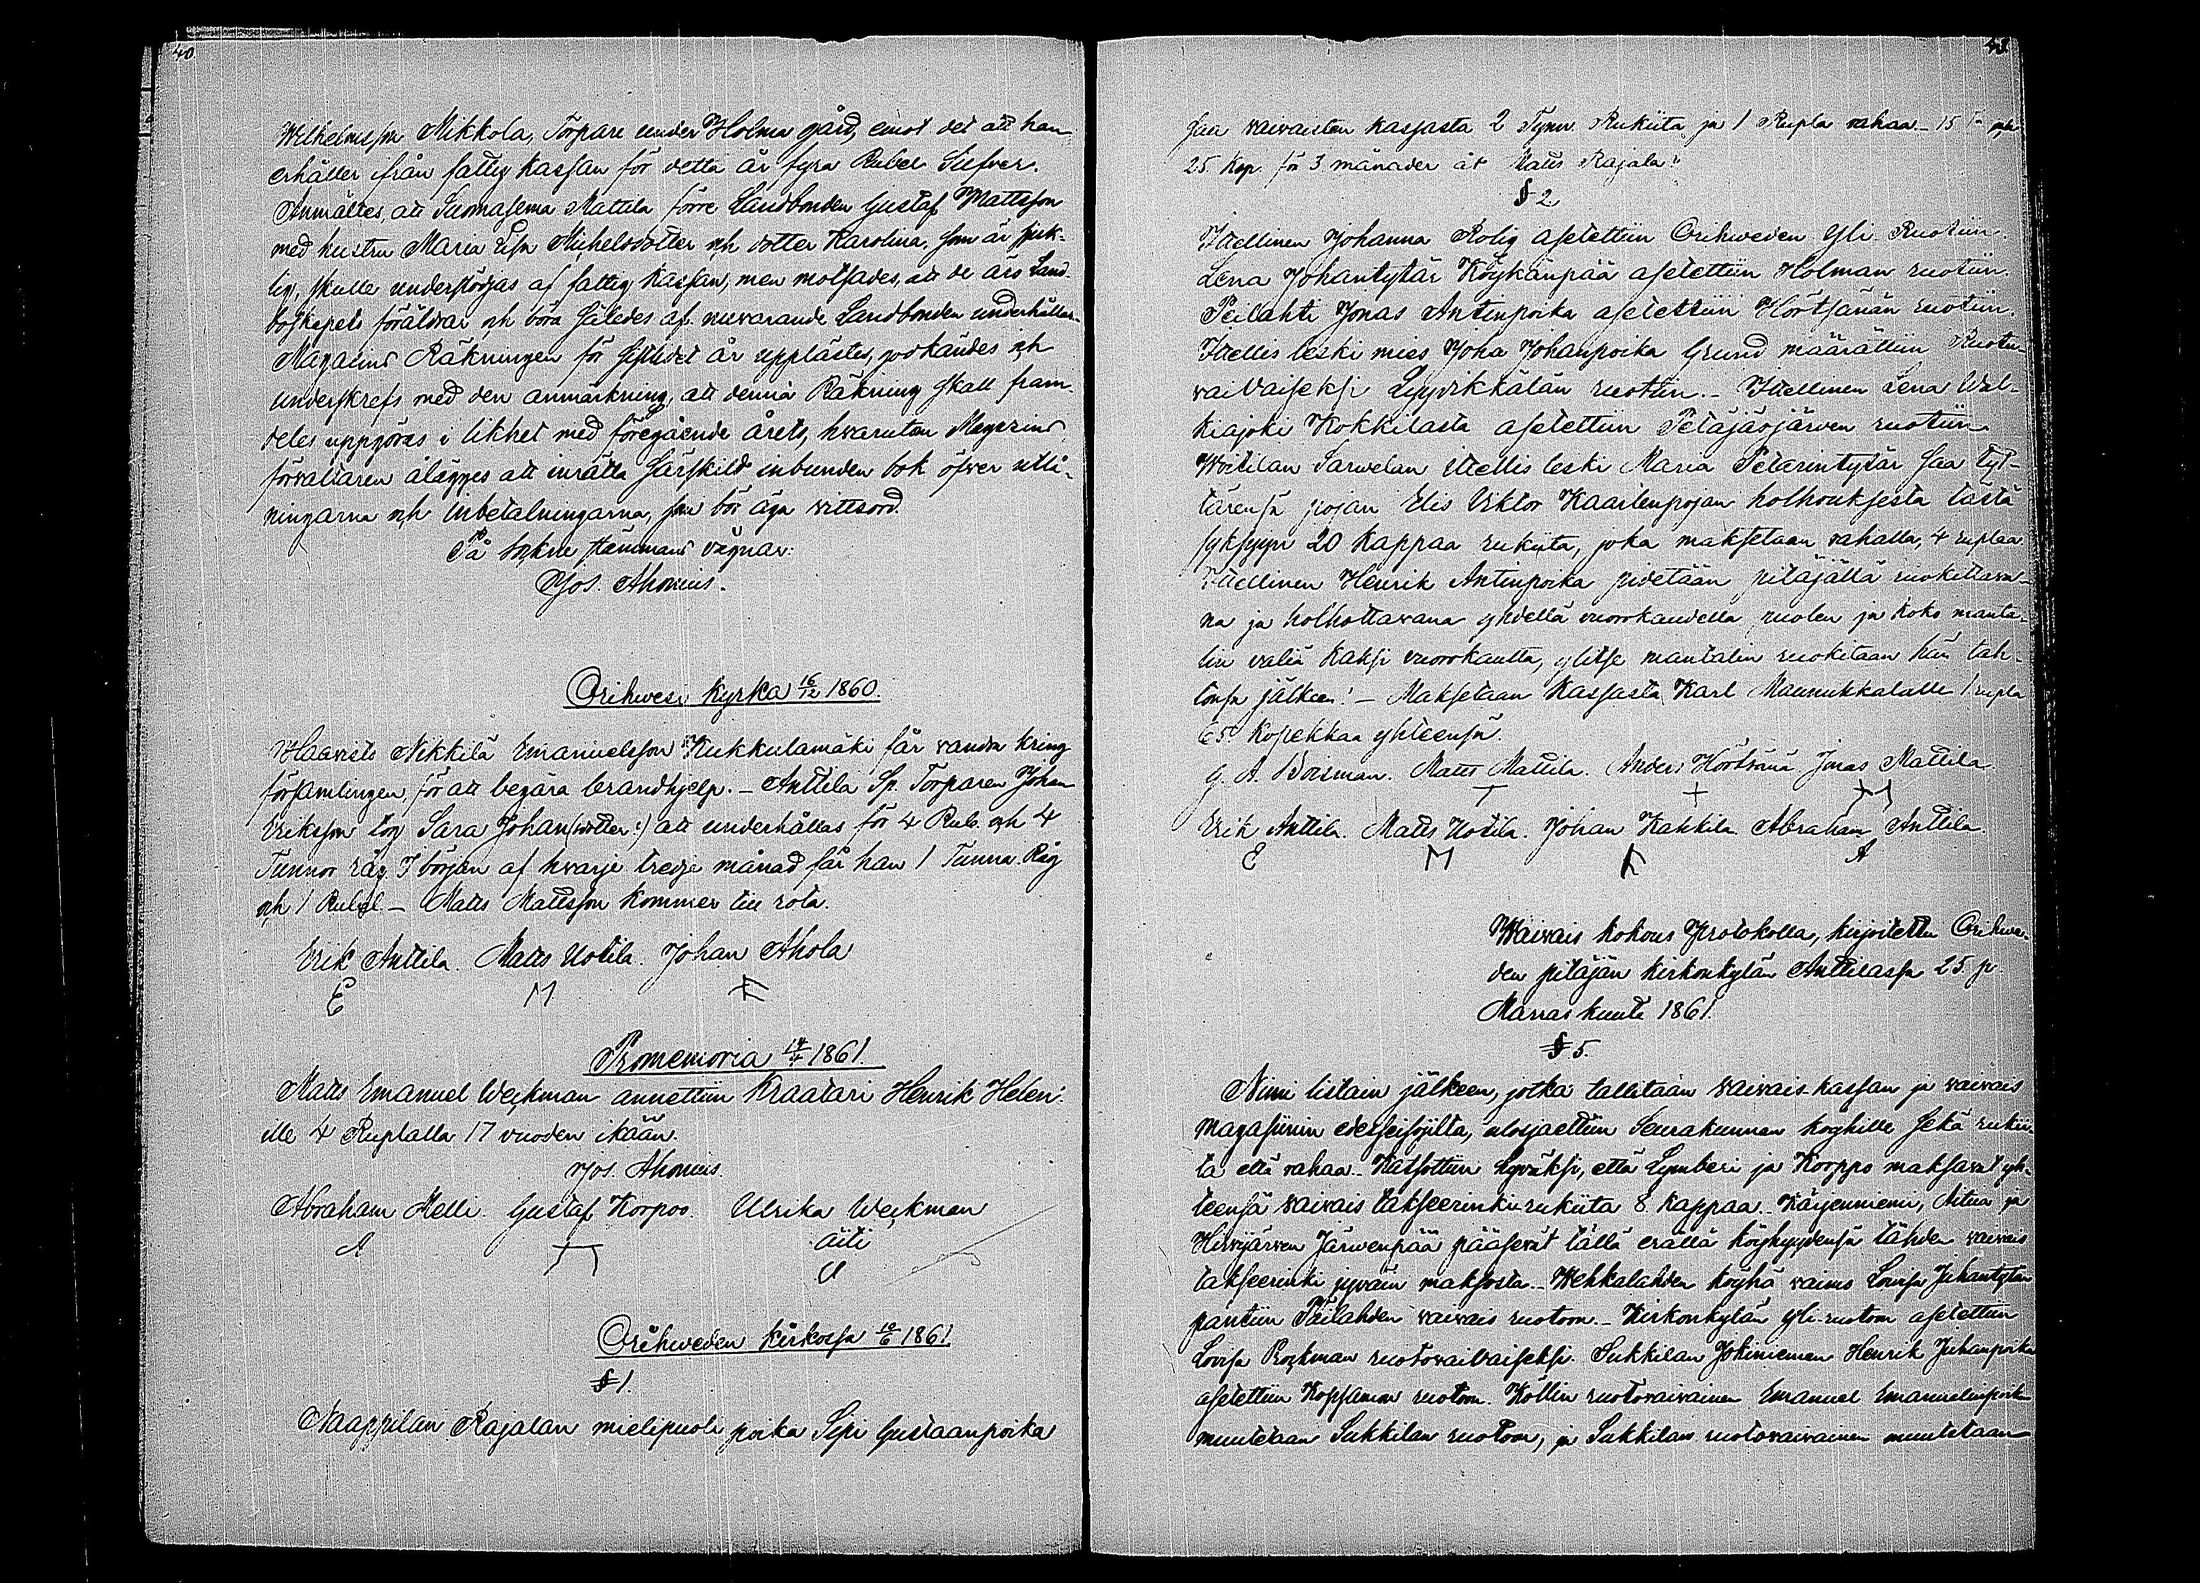 40
Wilhelmsson Mikkola, Torpare under Holma gård, emot det att han
erhåller ifrån fattig kassan för detta år fyra Rubel Silfver.
Anmältes, att Tuomasema Mattila förre Landbonden Gustaf Mattsson
med hustru Maria Lisa Michelsdotter och dotter Karolina, som är sjuk-
lig, skulle understödjas af fattig kassan, men motsades, att de äro Land-
boskapets föräldrar och böra således af nuvarande Landbonden underhållas.
Magasins Räkningen för sistlidet år upplästes, godkändes och
underskrefs med den anmärkning, att denna Räkning skall fram-
deles uppgöras i likhet med föregående årets, hvarutom Magasins
förvaltaren ålägges att inrätta särskild inbunden bok öfver utlå-
ningarna och inbetalningarna, som bör äga vittsord.
På Sockne stämmans vägnar:
Jos. Ahonius.
Orihwesi kyrka 16/12 1860.
Haavisto Nikkilä Emanuelsson Kukkulamäki får vandra kring
församlingen, för att begära brandhjelp. – Anttila Sp. Torparen Johan
Eriksson tog Sara Johan(:dotter:) att underhållas för 4 Rub. och 4
Tunnor råg. I början af hvarje tredje månad får han 1 Tunna Råg
och 1 Rubel. – Matts Mattsson kommer till rota.
Erik Anttila. Matts Uotila. Johan Ahola
E M
Promemoria 14/4 1861.
Matts Emanuel Weckman annettiin Kraatari Henrik Helen:
ille 4 Ruplalla 17 vuoden ikään.
Jos. Ahonius.
Abraham Melli. Gustaf Korpoo. Ulrika Weckman
äiti
A U
Orihweden kirkossa 10/6 1861.
§ 1.
Naappilan Rajalan mielipuoli poika Sepi Gustaanpoika
41
saa vaivaisten kassasta 2 Tynn. Rukiita ja 1 Rupla rahaa – 15
25 Kop. för 3 månader åt Matts Rajala:
§ 2.
Itsellinen Johanna Rolig asetettiin Orihweden Yli Ruotiin.
Lena Johantytär Köykänpää asetettiin Holman ruotiin.
Peilahti Jonas Antinpoika asetettiin Hörtsänän ruotiin.
Itsellis leski mies Joha Johanpoika Grund määrättiin Ruotu-
vaivaiseksi Lyyvikkälän ruotiin. – Itsellinen Lena Wal-
kiajoki Kokkilasta asetettiin Petäjäsjärven ruotiin.
Woitilan Sarwelan itsellis leski Maria Petarintytär saa tyt-
tärensä pojan Elis Viktor Kaarlenpojan holhouksesta tästä
syksyyn 20 kappaa rukiita, joka maksetaan rahalla, 4 ruplaa
Itsellinen Henrik Antinpoika pidetään pitäjällä ruokittava-
na ja holhottavana yhdellä vuorokaudella puolen ja koko manta-
lin väliä kaksi vuorokautta, ylitse mantalin ruokitaan hän tah-
tonsa jälkeen! – Maksetaan Kassasta Karl Maunukkalalle 1 rupla
65 kopekkaa yhteensä.
G. A. Boisman. Matts Mattila. Anders Hörtsänä Jonas Mattila
Erik Anttila. Matts Uotila. Johan Kakkila. Abraham Anttila.
E M K A
Waivais kokous Protokolla, kirjoitettu Orihwe-
den pitäjän kirkonkylän Anttilassa 25. p
Marras kuuta 1861.
§ 5.
Nimi listain jälkeen, jotka tallitaan vaivais kassan ja vaivais
magasiinin edesseisojilta, ulosjaettiin Seurakunnan köyhille sekä rukii-
ta että rahaa. – Katsottiin hyväksi, että Lymberi ja Korppo maksavat yh-
teensä vaivais takseerinki rukiita 8 kappaa. – Kärjenniemi, Aitua ja
Hirvijärven Järwenpää pääsevät tällä erällä köyhyydensä tähden vaivais
takseerinki jyväin maksosta. – Wehkalahden köyhä vaimo Lovisa Juhantytär
pantiin Peilahden vaivais ruotoon. – Kirkonkylän yli-ruotoon asetettiin
Lovisa Brockman ruotovaivaiseksi. Sukkilan Jokiniemen Henrik Juhanpoika
asetettiin Kopsamon ruotoon. Köllin ruotovaivainen Emanuel Emanuelinpoika
muutetaan Sukkilan ruotoon, ja Sukkilan ruotovaivainen muutetaan